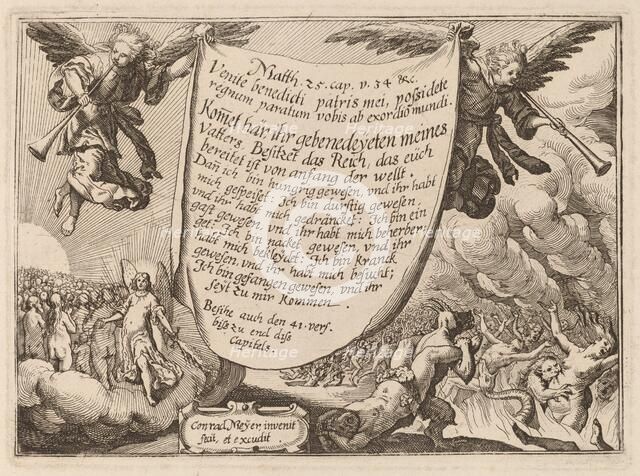 Matth. 25. cap. v. 34 &c.
Venite benedicti patris mei, possidete
regnum paratum vobis ab exordio mundi.
Komet här ihr gebenedeyeten meines
Vatters, Besitzet das Reich, das euch
bereitet ist von anfang der wellt.
Dañ ich bin hungrig gewesen, vnd ihr habt
mich gespeiset: Ich bin durstig gewesen,
vnd ihr habt mich gedräncket: Ich bin ein
gast gewesen, vnd ihr habt mich beherber,
get: Ich bin nacket gewesen, vnd ihr
habt mich bekleydt: Ich bin kranck
gewesen, vnd ihr habt mich besucht;
Ich bin gefangen gewesen, vnd ihr
seyt zu mir kommen.
Besihe auch den 41. vers.
biß zu end diß
Capitels.
Conrad Meÿer invenit
fecit, et excudit.